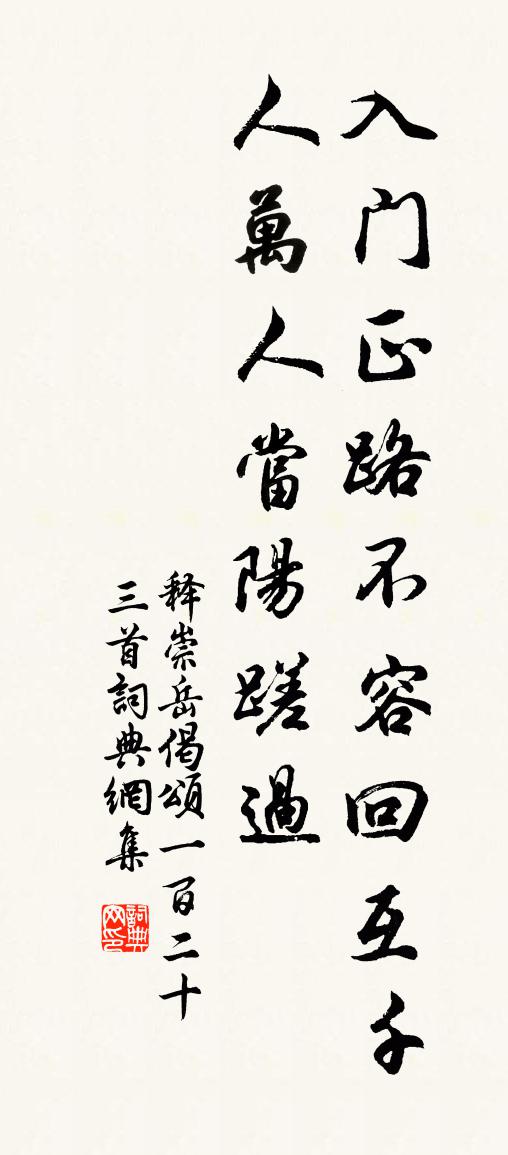 入門正路不容回互千
人萬人當陽蹉過
释崇岳偈頌一百二十
三首詞典網集
詞典
网印